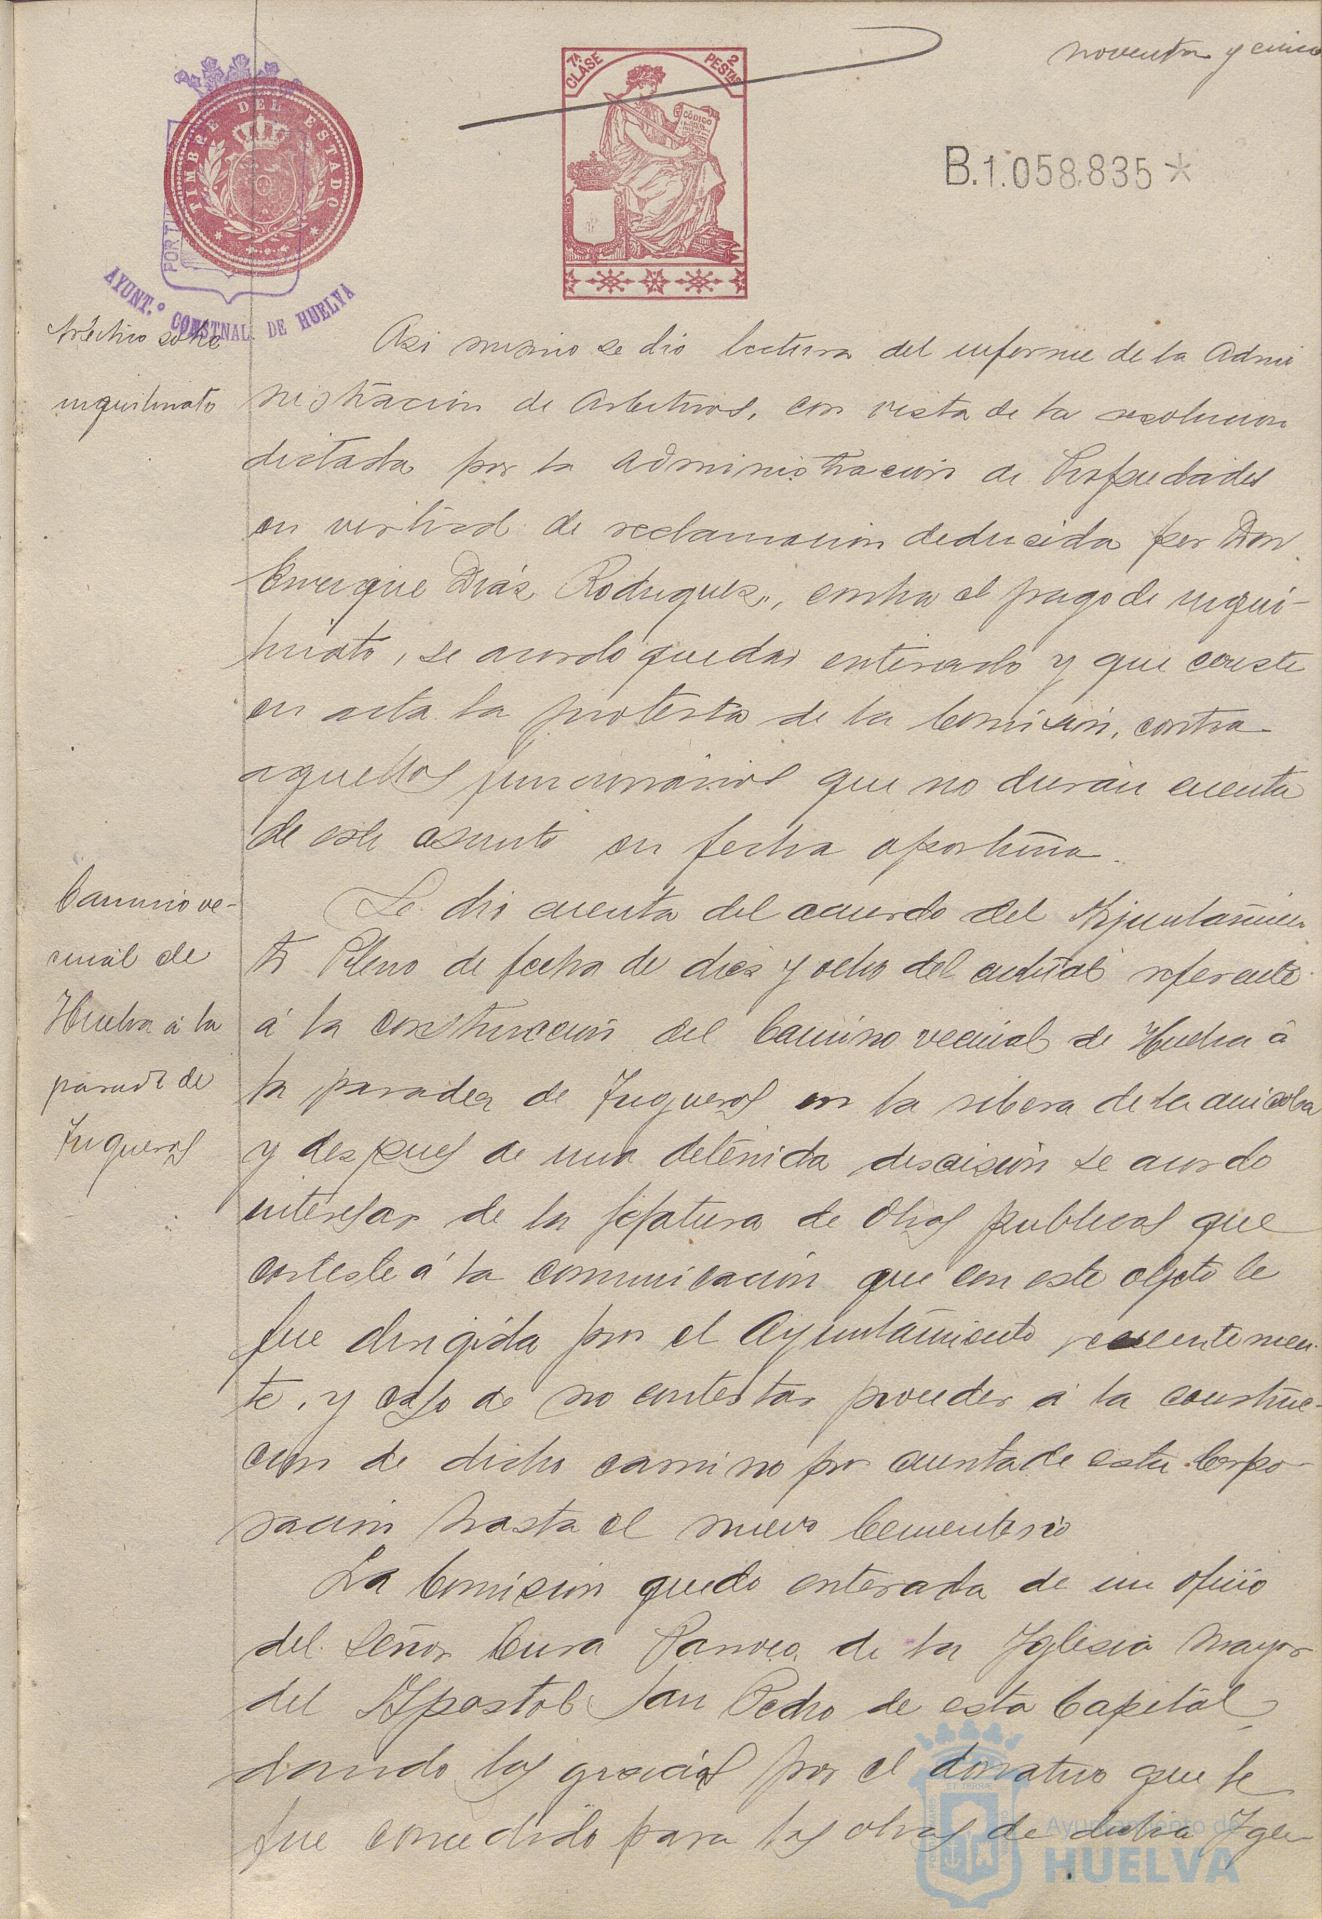 noventa y cinco
7ª CLASE 2 PESTAS
CÓDIGO
TIMBRE DEL ESTADO
B.1.058,835*
AYUNT.º CONSTNAL. DE HUELVA
Arbitrio sobre
inquilinato
Asi mismo se dio lectura del informe de la Admi
nistracion de Arbitrios, con vista de la resolucion
dictada por la administracion de Propiedades
en virtud de reclamacion deducida por Don
Enrique Diaz Rodriguez, contra el pago de inqui-
linato, se acordo quedar enterado y que conste
en acta la protesta de la Comision, contra
aquellos funcionarios que no dieran cuenta
de este asunto en fecha oportuna.
Camino ve-
cinal de
Huelva á la
parada de
Jugueros
Se dio cuenta del acuerdo del Ayuntamien
to Pleno de fecha de diez y ocho del actual referente
á la construccion del Camino vecinal de Huelva á
la parada de Jugueros en la ribera de la anicoba
y despues de una detenida discusion se acordo
interesar de la Jefatura de Obras publicas que
conteste á la comunicacion que con este objeto le
fue dirigida por el Ayuntamiento recientemen-
te, y caso de no contestar proceder á la construc-
cion de dicho camino por cuenta de esta Corpo-
racion hasta el nuevo Cementerio
La Comision quedo enterada de un oficio
del Señor Cura Parroco de la Iglesia mayor
del Apostol San Pedro de esta Capital
dando las gracias por el donativo que le
fue concedido para las obras de dicha Igle-
Ayuntamiento de
HUELVA